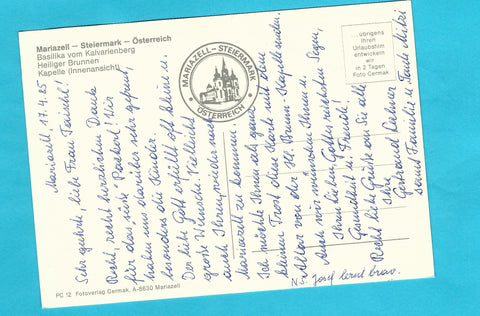 Mariazell – Steiermark – Österreich
Basilika vom Kalvarienberg
Heiliger Brunnen
Kapelle (Innenansicht)
MARIAZELL - STEIERMARK
ÖSTERREICH
...übrigens
Ihren
Urlaubsfilm
entwickeln
wir
in 2 Tagen
Foto Cermak
Mariazell, 17.4.85
Sehr geehrte, liebe Frau
Recht, recht herzlichen Dank
für das süße "Packerl"! Wir
haben uns darüber sehr gefreut,
besonders die Kinder.
Der liebe Gott erfüllt oft kleine u.
große Wünsche! Vielleicht
auch Ihren, wieder nach
Mariazell zu kommen.
Ich möchte Ihnen als ganz
kleinen Trost diese Karte mit dem
Altar von der "Hl. Brunn-Kapelle" senden.
Auch wir wünschen Ihnen u.
Ihren Lieben Gottes reichsten Segen,
Gesundheit u. Freude!
Recht liebe Grüße an Sie alle
Ihre
Gertraud
samt Familie u. Tante Mitzi
Josef lernt brav.
PC 12 Fotoverlag Cermak, A-8630 Mariazell